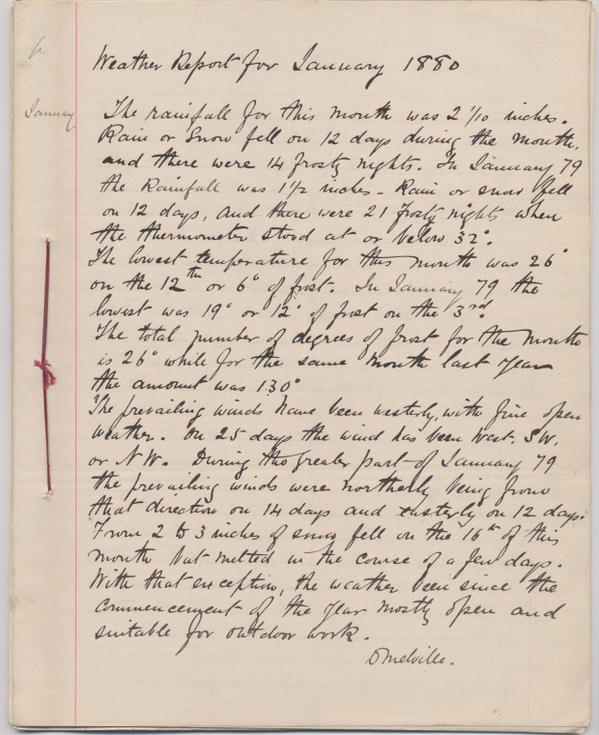 Weather Report for January 1880
January
The rainfall for this month was 2 1/10 inches.
Rain or Snow fell on 12 days during the month,
and there were 14 frosty nights. In January 79
the Rainfall was 1 1/2 inches - Rain or snow fell
on 12 days, and there were 21 frosty nights when
the thermometer stood at or below 32°.
The lowest temperature for this month was 26°
on the 12th or 6° of frost. In January 79 the
lowest was 19° or 12° of frost on the 3rd.
The total number of degrees of frost for the month
is 26° while for the same month last year
the amount was 130°
The prevailing winds have been westerly, with fine open
weather. On 25 days the wind has been West. S.W.
or N.W. During the greater part of January 79
the prevailing winds were northerly being from
that direction on 14 days and easterly on 12 days.
From 2 to 3 inches of snow fell on the 16th of this
month but melted in the course of a few days.
With that exception, the weather been since the
commencement of the year mostly open and
suitable for outdoor work.
DMelville.